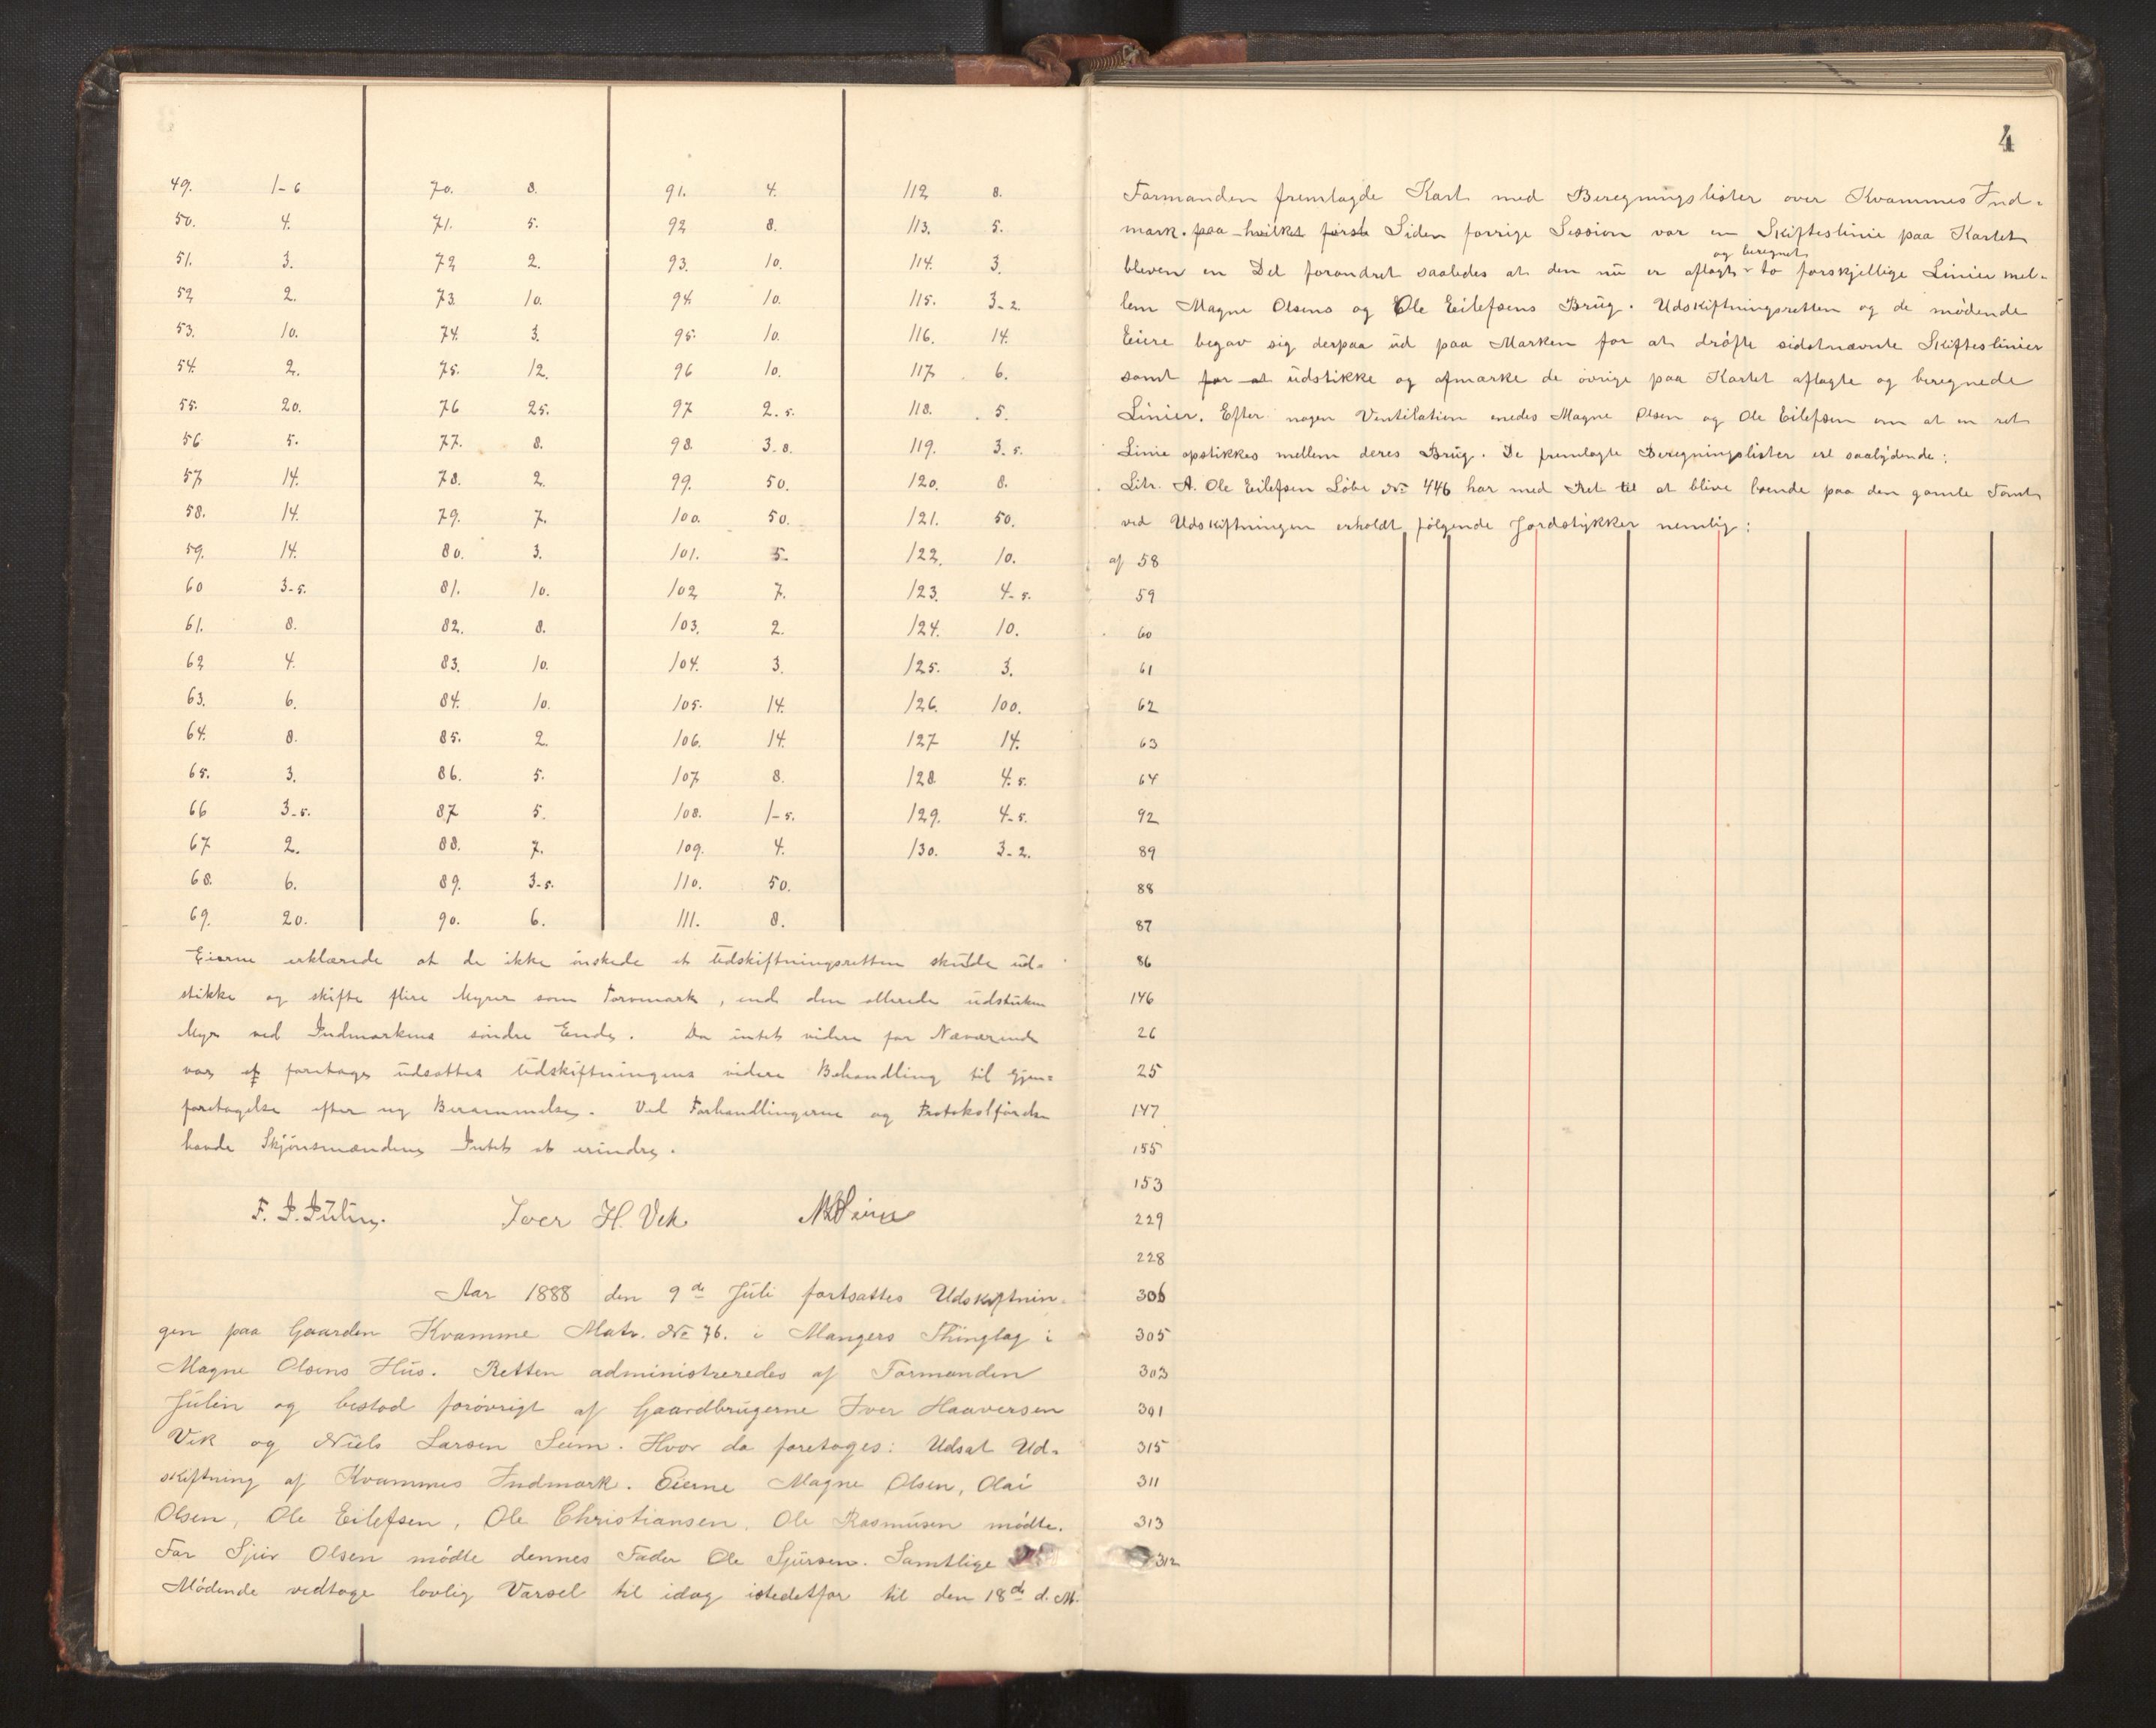 49. 1-6 70. 8. 91. 4. 112 8.
50. 4. 71. 5. 92 8. 113. 5.
51. 3. 72 2. 93. 10. 114. 3.
52 2. 73. 10. 94. 10. 115. 3-2.
53. 10. 74. 3. 95. 10. 116. 14.
54. 2. 75. 12. 96 10. 117 6.
55. 20. 76 25. 97 2.5. 118. 5.
56 5. 77. 8. 98. 3.8. 119. 3.5.
57 14. 78. 2. 99. 50. 120. 8.
58. 14. 79. 7. 100. 50. 121. 50.
59. 14. 80. 3. 101. 5. 122. 10.
60 3-5. 81. 10. 102 7. 123. 4-5.
61. 8. 82. 8. 103. 2. 124. 10.
62 4. 83. 10. 104. 3. 125. 3.
63. 6. 84. 10. 105. 14. 126. 100.
64. 8. 85. 2. 106. 14. 127 14.
65. 3. 86. 5. 107 8. 128. 4.5.
66 3-5. 87 5. 108. 1-5. 129. 4-5.
67 2. 88. 7. 109. 4. 130. 3-2.
68. 6. 89. 3-5. 110. 50.
69. 20. 90. 6. 111. 8.
Eierne erklærede at de ikke ønskede at Udskiftningsretten skulde ud-
stikke og skifte flere Myrer som Torvmark, end den allerede udstukne
Myr ved Indmarkens søndre Ende. Da intet videre for Nærværende
var at foretage udsattes Udskiftningens videre Behandling til Gjen-
foretagelse efter ny Berammelse. Ved Forhandlingerne og Protokolførelsen
havde Skjønsmændene Intet at erindre.
F. J. Julin. Iver H. Vik N L Seim
Aar 1888 den 9de Juli fortsattes Udskiftnin-
gen paa Gaarden Kvamme Matr. No 76. i Mangers Thinglag i
Magne Olsens Hus. Retten administreredes af Formanden
Julin og bestod forøvrigt af Gaardbrugerne Iver Haaversen
Vik og Niels Larsen Seim. Hvor da foretoges: Udsat Ud-
skiftning af Kvammes Indmark. Eierne Magne Olsen, Olai
Olsen, Ole Eilefsen, Ole Christiansen, Ole Rasmusen mødte.
For Sjur Olsen mødte dennes Fader Ole Sjursen. Samtlige
Mødende vedtoge lovlig Varsel til idag istedetfor til den 18de d. M.
4
Formanden fremlagde Kart med Beregningslister over Kvammes Ind-
mark. paa hvilket første Siden forrige Session var en Skifteslinie paa Kartet
og beregnet
bleven en Del forandret saaledes at den nu er aflagt to forskjellige Linier mel-
lem Magne Olsens og Ole Eilefsens Brug. Udskiftningsretten og de mødende
Eiere begav sig derpaa ud paa Marken for at drøfte sidstnævnte Skifteslinier
samt for at udstikke og afmærke de øvrige paa Kartet aflagte og beregnede
Linier. Efter nogen Ventilation enedes Magne Olsen og Ole Eilefsen om at en ret
Linie opstikkes mellem deres Brug. De fremlagte Beregningslister ere saalydende:
Litr. A. Ole Eilefsen Løbe No 446 har med Ret til at blive boende paa den gamle Tomt
ved Udskiftningen erholdt følgende Jordstykker nemlig:
af 58
59
60
61
62
63
64
92
89
88
87
86
146
26
25
147
155
153
229
228
306
305
303
301
315
311
313
312